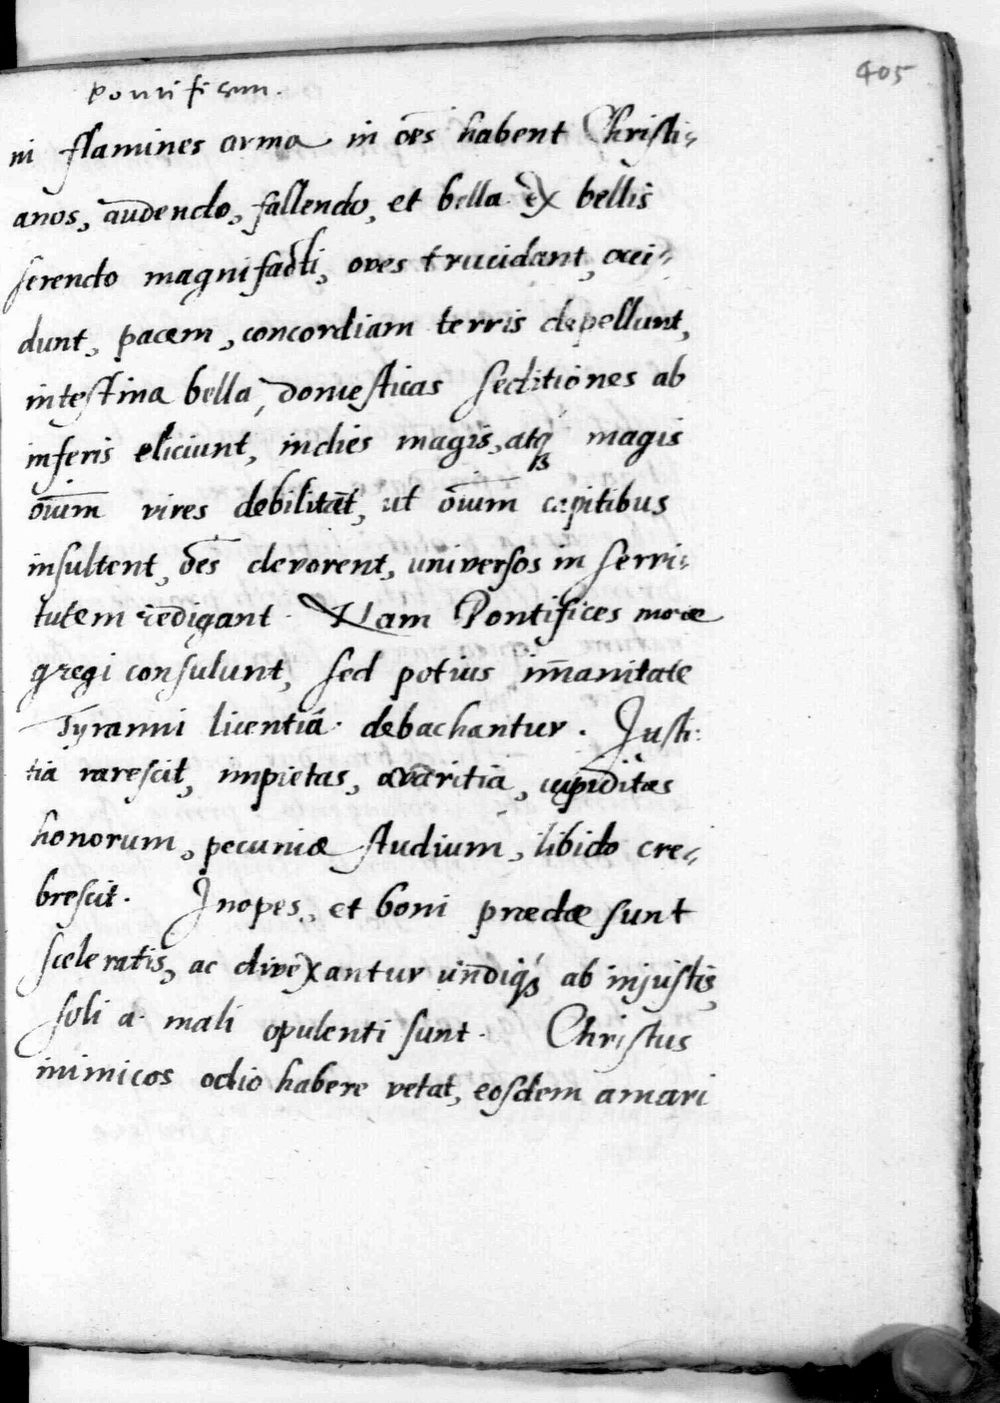 405
Pontificum.
ni flamines arma in oēs habent Christi-
anos, audendo, fallendo, et bella ex bellis
serendo magni facti, oves trucidant, occi-
dunt, pacem, concordiam terris depellunt,
intestina bella, domesticas seditiones ab
inferis eliciunt, indies magis, atq magis
oīum vires debilitāt, ut oīum capitibus
insultent, oēs devorent, universos in servi-
tutem redigant. Nam Pontifices more
gregi consulunt, sed potius im̄anitate
Tyranni licentiâ debachantur. Justi-
tia rarescit, impietas, avaritia, cupiditas
honorum, pecuniæ studium, libido cre-
brescit. Inopes, et boni prædæ sunt
sceleratis, ac divexantur undiq ab injustis,
soli a. mali opulenti sunt. Christus
inimicos odio habere vetat, eosdem amari